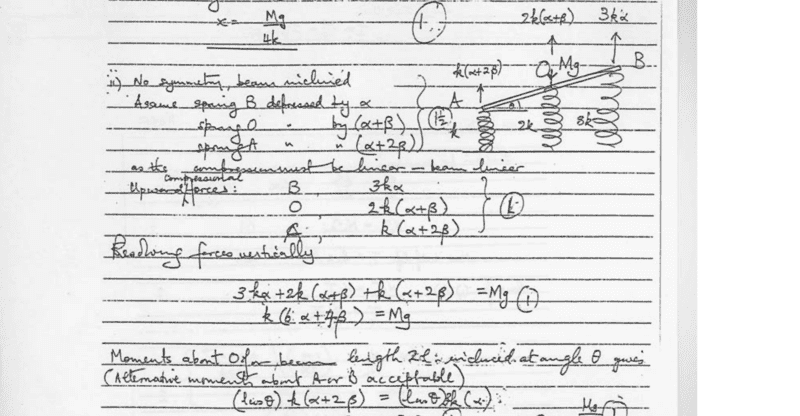 x = Mg
4k
1.
2k(α+β) 3kα
ii) No symmetry, beam inclined
k(α+2β) O Mg B
Assume spring B depressed by α
A
spring O " by (α+β)
1½ k 2k 3k
spring A " " (α+2β)
as the compression must be linear – beam linear
compressional
Upward forces: B, 3kα
O, 2k(α+β)
A, k(α+2β)
Resolving forces vertically,
3kα + 2k(α+β) + k(α+2β) = Mg 1
k(6α+4β) = Mg
Moments about O for beam length 2l: inclined at angle θ gives
(Alternative moments about A or B acceptable)
(l cos θ) k(α+2β) = (l cos θ) 3k(α)